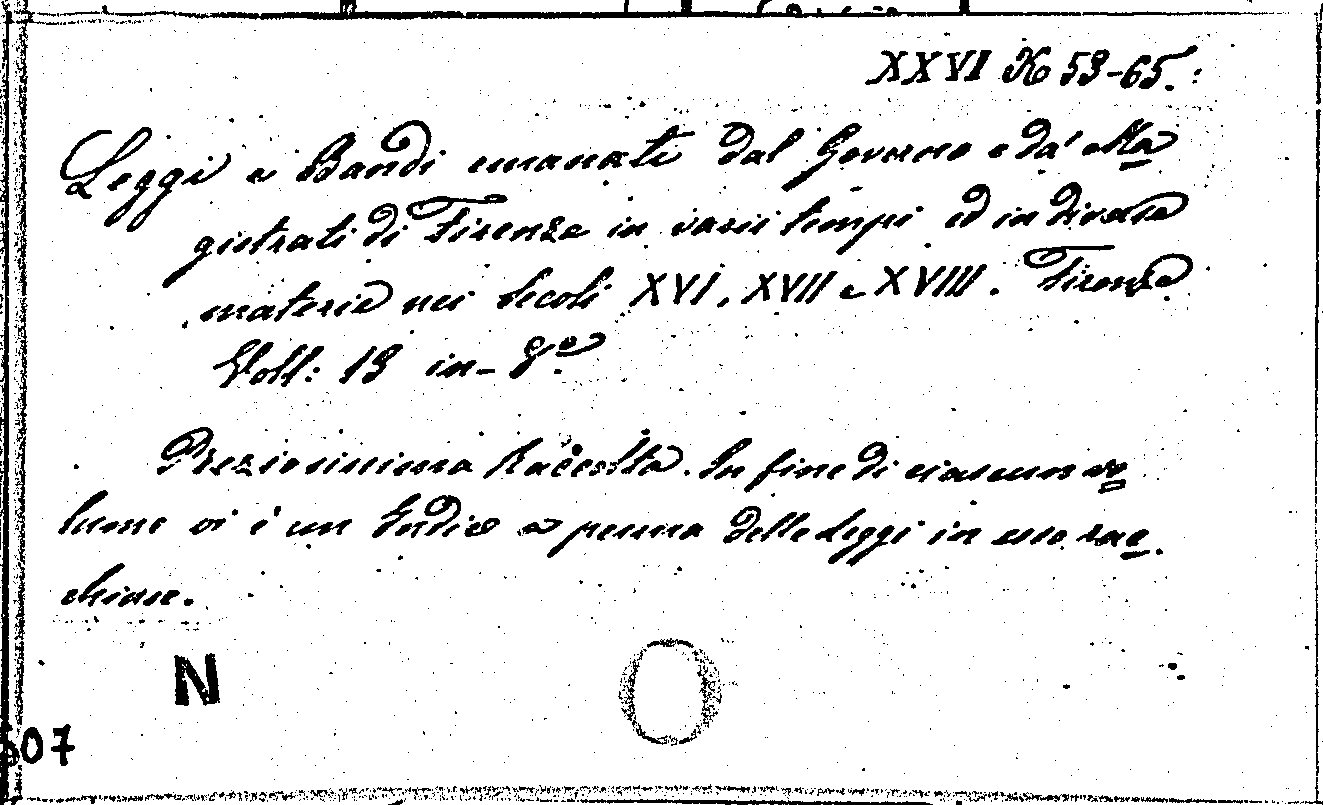 XXVI K 53-65.
Leggi e Bandi emanati dal Governo e da' Ma
gistrati di Firenze in varii tempi ed in diverse
materie nei Secoli XVI, XVII e XVIII. Firenze
Voll: 13 in-8º
Preziosissima Raccolta. In fine di ciascun vo
lume vi è un Indice a penna delle Leggi in esso rac
chiuse.
N
507